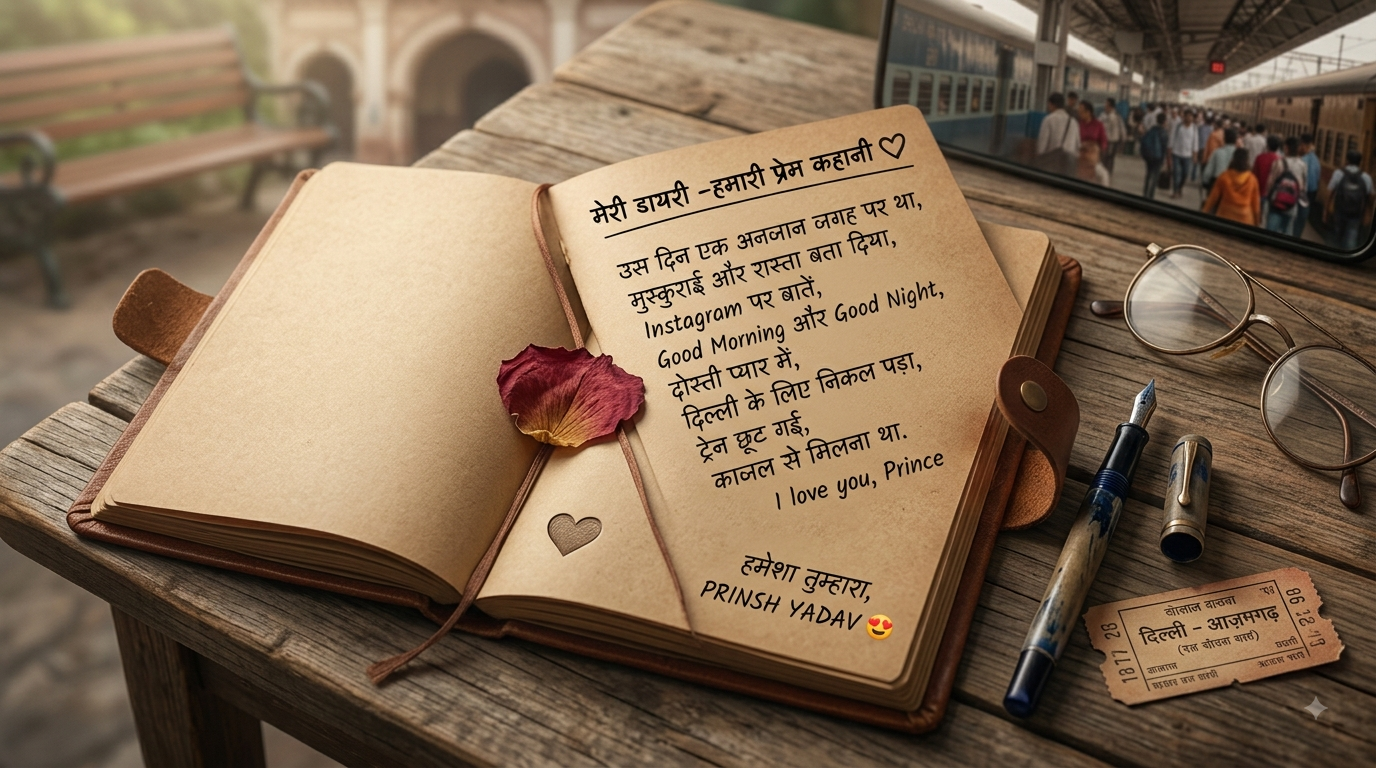 मेरी डायरी - हमारी प्रेम कहानी ♡
उस दिन एक अनजान जगह पर था,
मुस्कुराई और रास्ता बता दिया,
Instagram पर बातें,
Good Morning और Good Night,
दोस्ती प्यार में,
दिल्ली के लिए निकल पड़ा,
ट्रेन छूट गई,
काजल से मिलना था.
I love you, Prince
हमेशा तुम्हारा,
PRINSH YADAV 😍
दिल्ली - आज़मगढ़